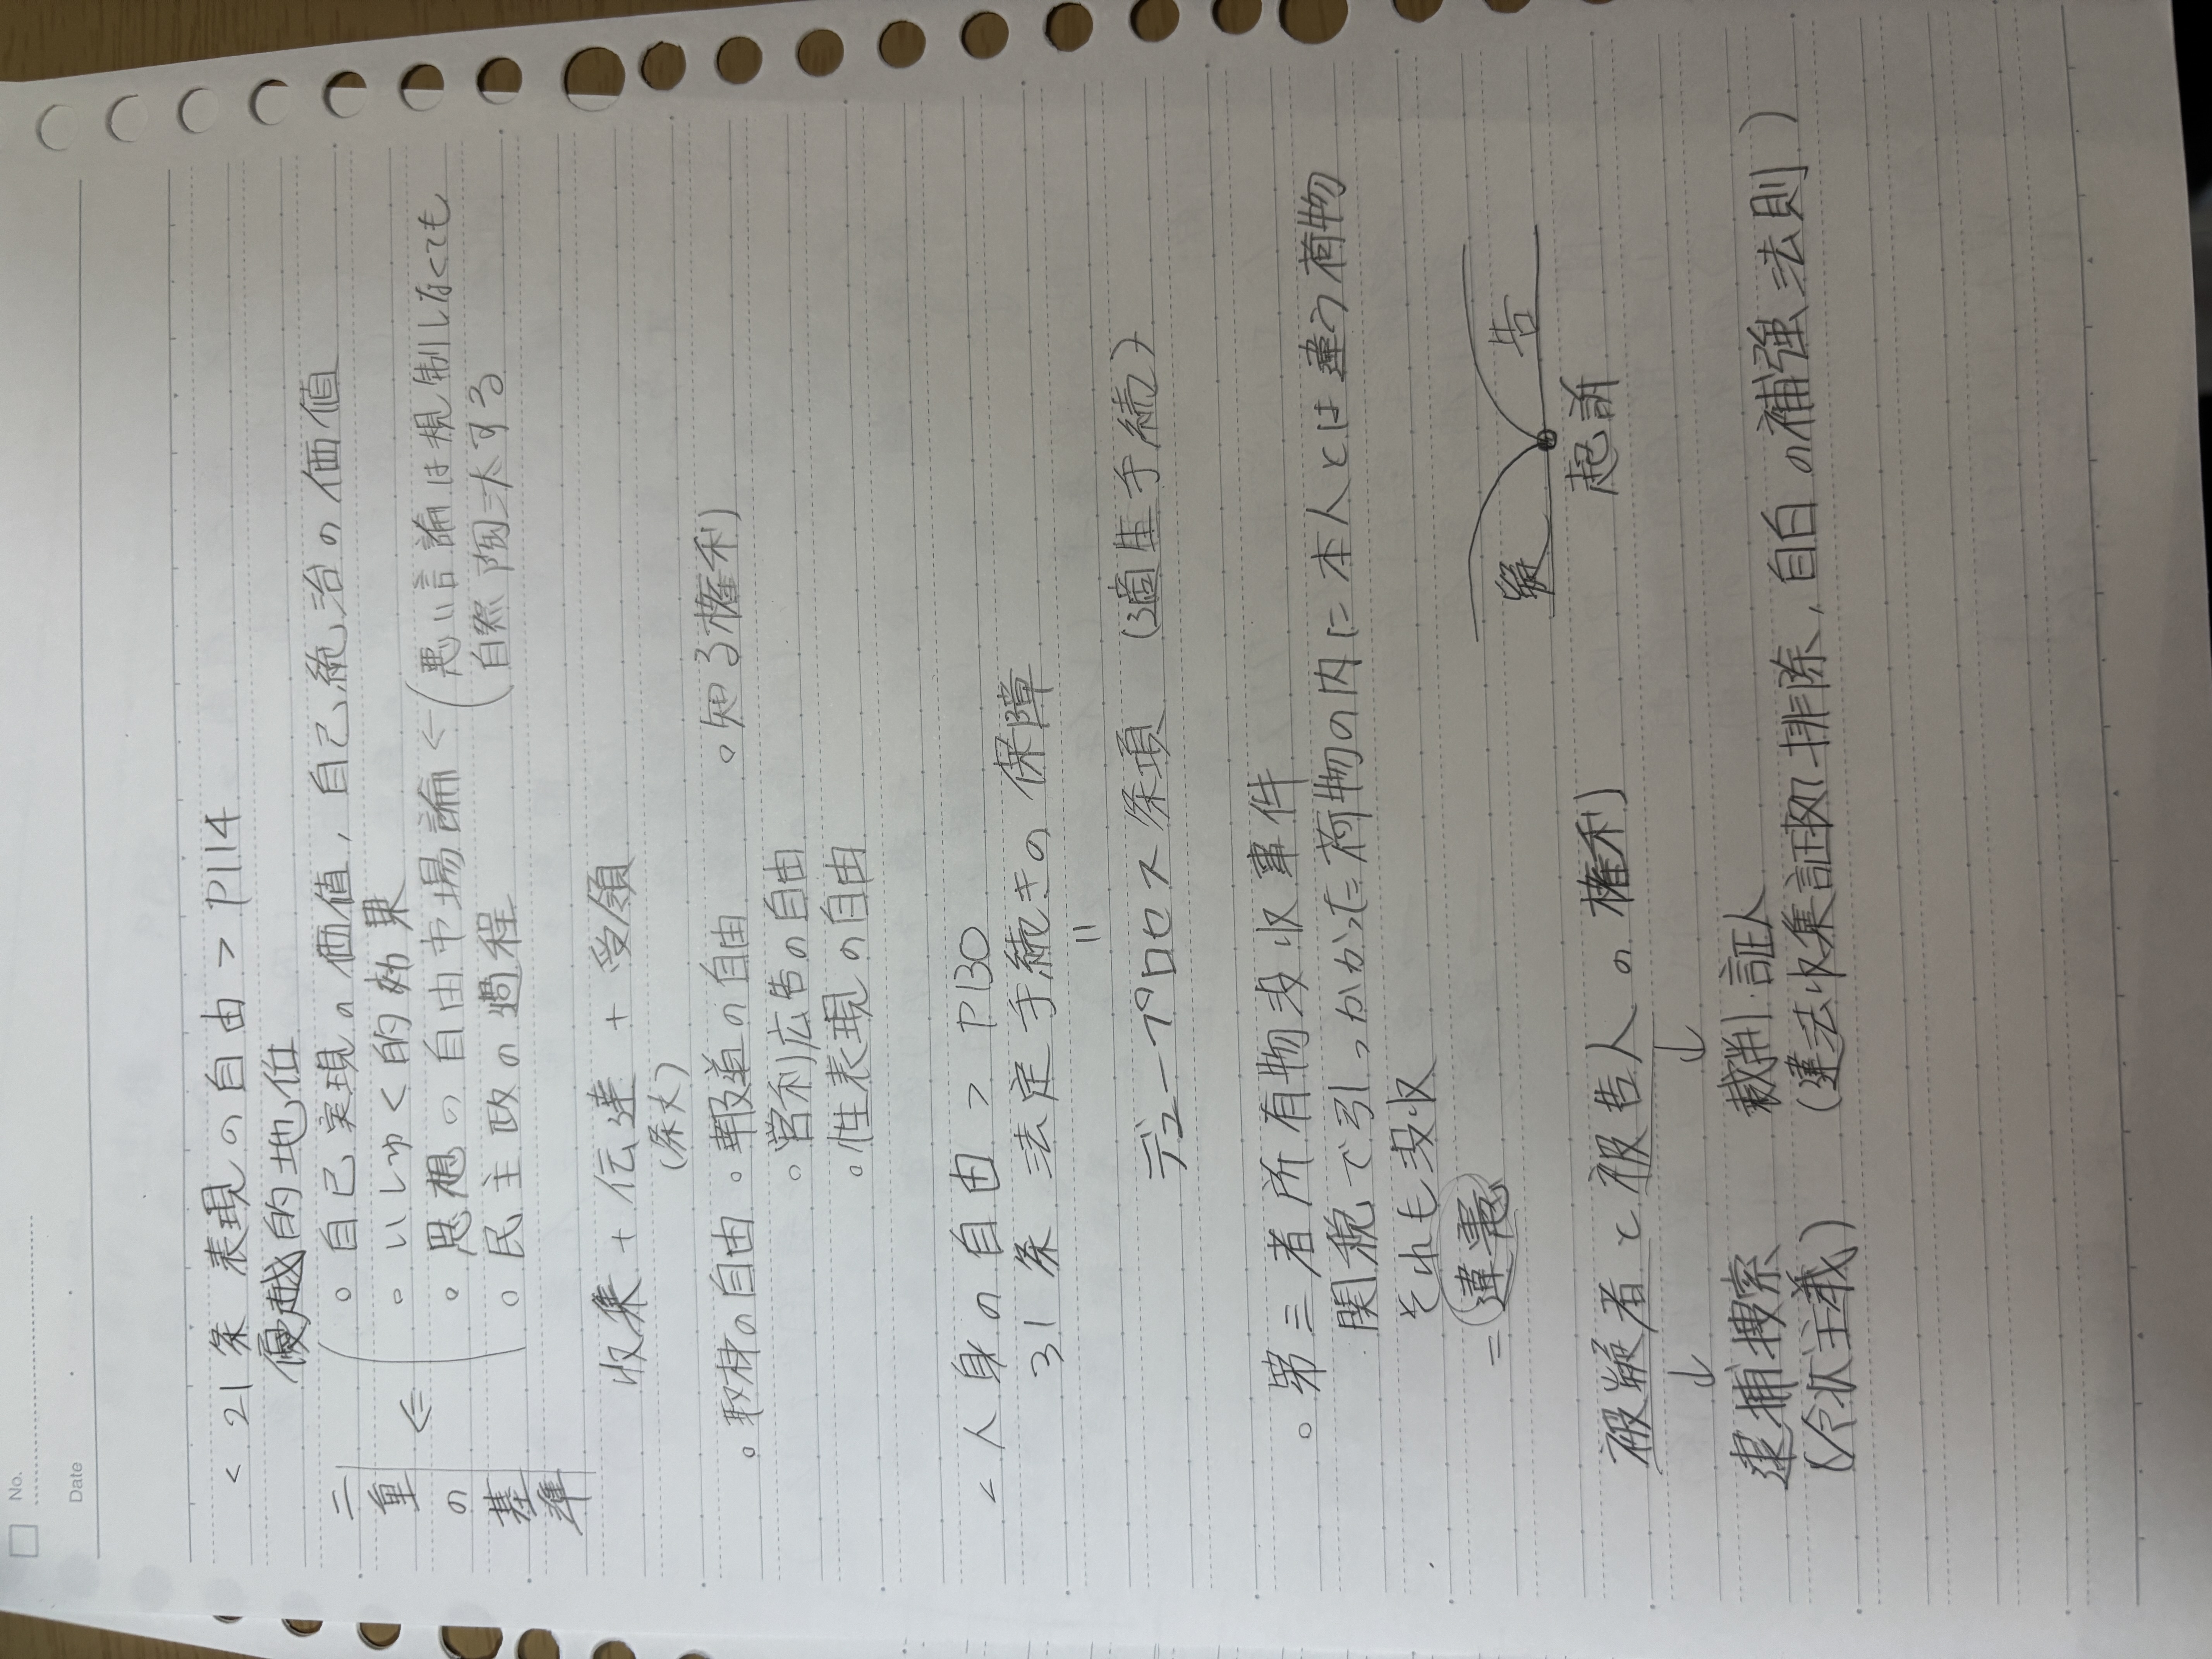 No.
Date
< 21条 表現の自由 > P114
優越的地位
二重の基準 ⇐
。自己実現の価値, 自己統治の価値
。いしゅく的効果
。思想の自由市場論 ← (悪い言論は規制しなくても
自然陶汰する
。民主政の過程
収集 + 伝達 + 受領
(条文)
。取材の自由 。報道の自由 。知る権利
。営利広告の自由
。性表現の自由
< 人身の自由 > P130
31条 法定手続きの保障
=
デュープロセス条項 (適正手続)
。第三者所有物没収事件
関税で引っかかった荷物の内に本人とは違う荷物
それも没収
= 違憲
疑 告
起訴
被疑者と被告人の権利
↓ ↓
逮捕捜索 裁判・証人
(令状主義) (違法収集証拠排除, 自白の補強法則)